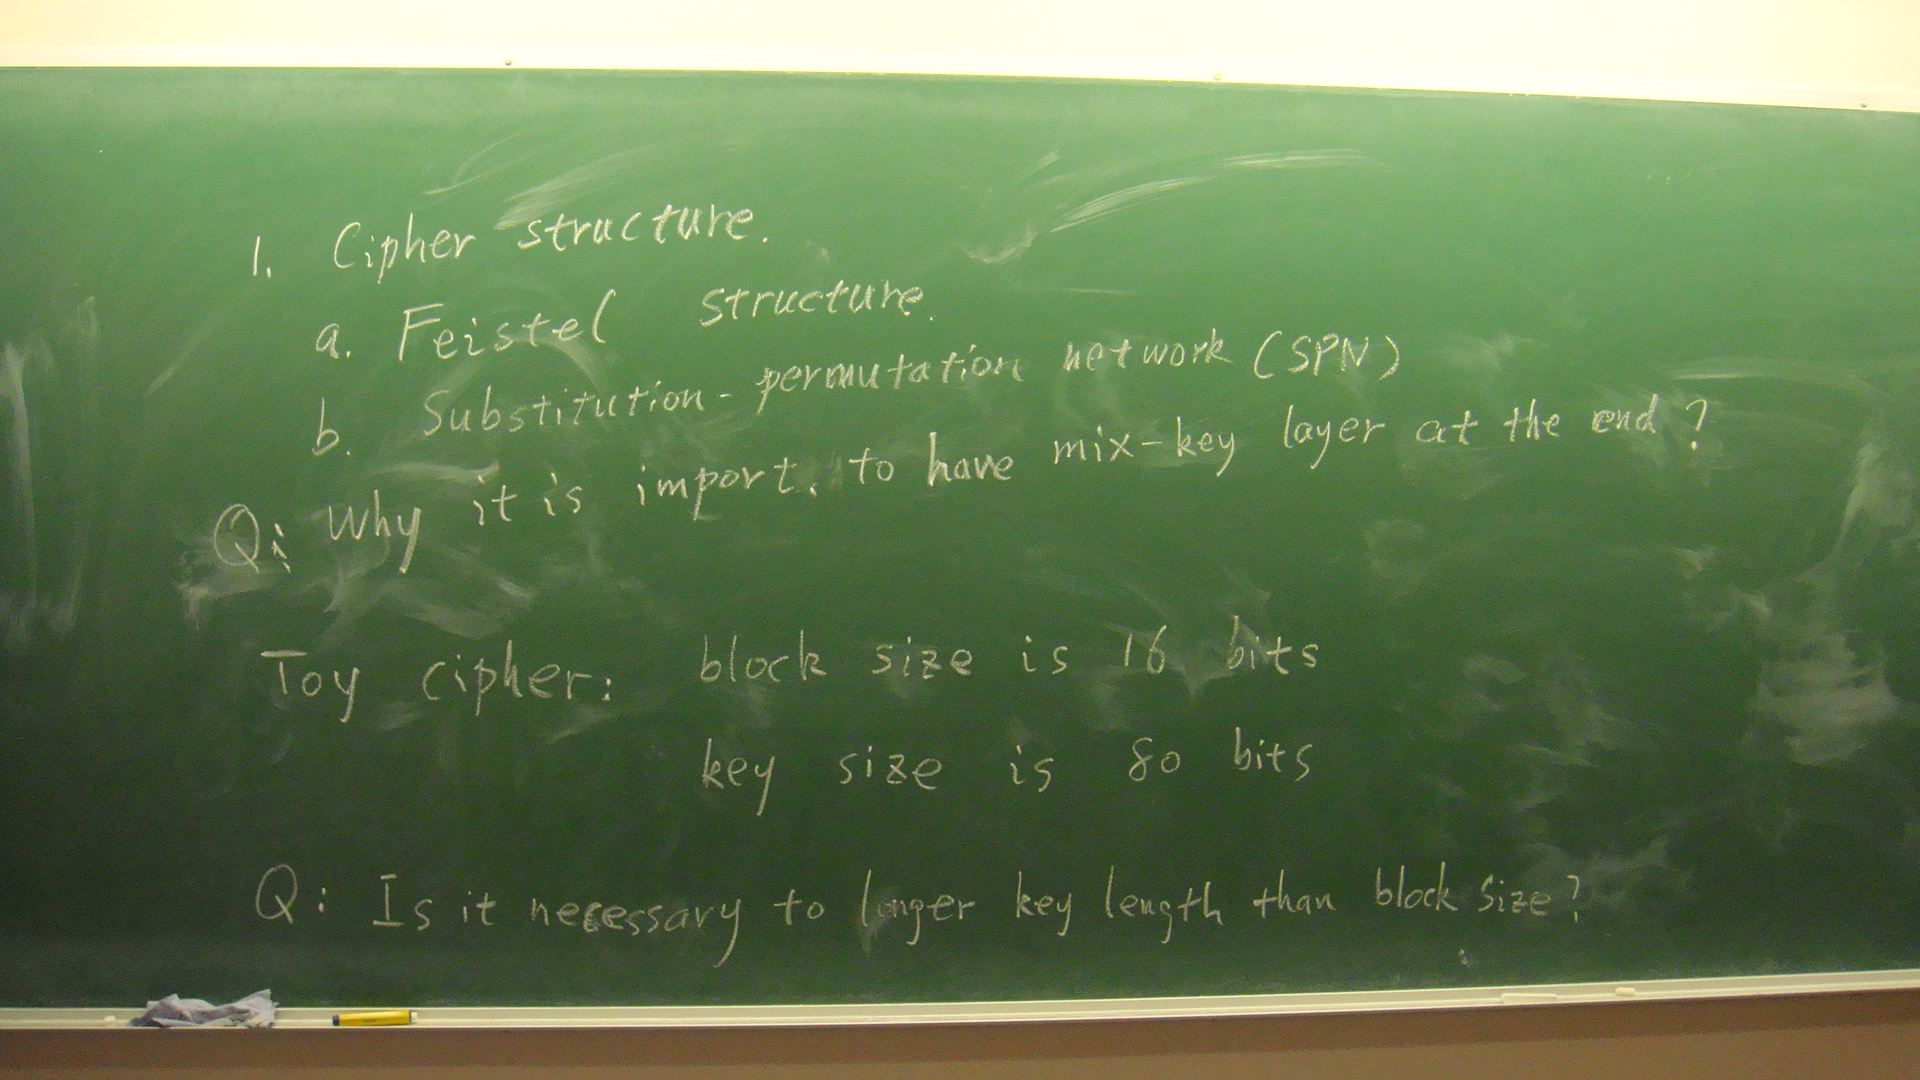 1. Cipher structure.
a. Feistel structure.
b. Substitution-permutation network (SPN)
Q: Why it is import. to have mix-key layer at the end?
Toy cipher: block size is 16 bits
key size is 80 bits
Q: Is it necessary to longer key length than block size?